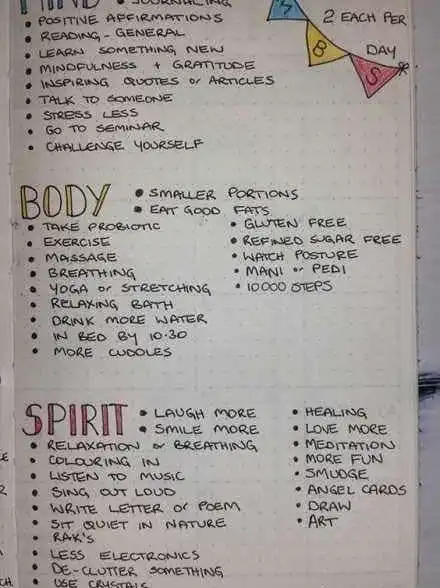 MIND • JOURNALING
• POSITIVE AFFIRMATIONS
• READING - GENERAL
• LEARN SOMETHING NEW
• MINDFULNESS + GRATITUDE
• INSPIRING QUOTES or ARTICLES
• TALK TO SOMEONE
• STRESS LESS
• GO TO SEMINAR
• CHALLENGE YOURSELF
2 EACH PER
DAY
B
S
BODY
• SMALLER PORTIONS
• EAT GOOD FATS
• TAKE PROBIOTIC
• EXERCISE
• MASSAGE
• BREATHING
• YOGA or STRETCHING
• RELAXING BATH
• DRINK MORE WATER
• IN BED BY 10.30
• MORE CUDDLES
• GLUTEN FREE
• REFINED SUGAR FREE
• WATCH POSTURE
• MANI or PEDI
• 10000 STEPS
SPIRIT
• LAUGH MORE
• SMILE MORE
• RELAXATION or BREATHING
• COLOURING IN
• LISTEN TO MUSIC
• SING OUT LOUD
• WRITE LETTER or POEM
• SIT QUIET IN NATURE
• RAK's
• LESS ELECTRONICS
• DE-CLUTTER SOMETHING
• USE CRYSTALS
• HEALING
• LOVE MORE
• MEDITATION
• MORE FUN
• SMUDGE
• ANGEL CARDS
• DRAW
• ART